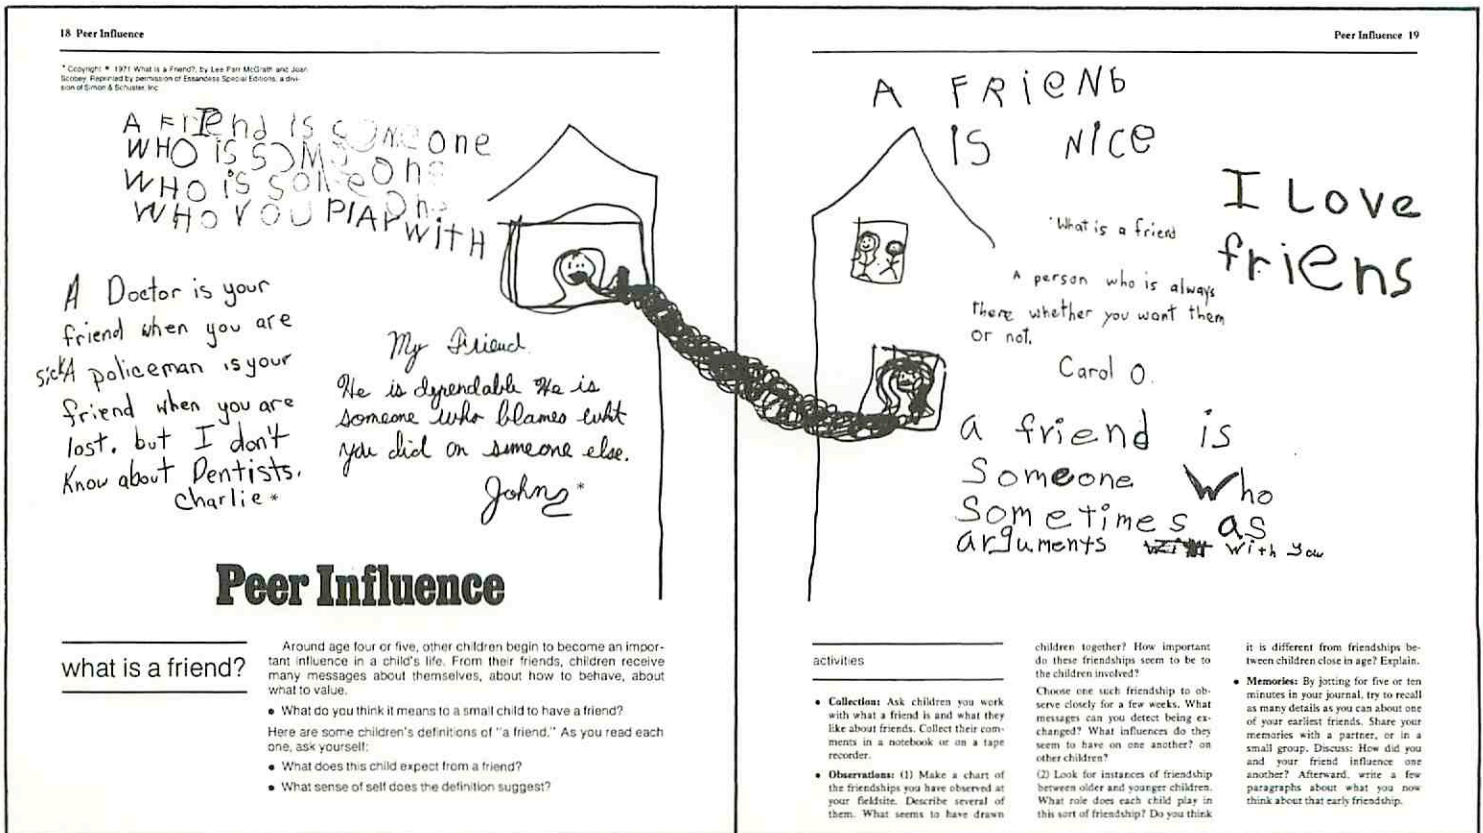 18 Peer Influence
* Copyright © 1971 What is a Friend?, by Lee Parr McGrath and Joan
Scobey. Reprinted by permission of Essandess Special Editions, a divi-
sion of Simon & Schuster, Inc.
A FIREnd is SOMEone
WHO iS SOMeone
WHO iS SOMeone
WHO YOU PlAY
WiTH
A Doctor is your
friend when you are
sick A policeman is your
friend when you are
lost. but I don't
Know about Dentists.
Charlie *
My Friend
He is dependable He is
someone who blames wht
you did on someone else.
John *
Peer Influence
what is a friend?
Around age four or five, other children begin to become an impor-
tant influence in a child's life. From their friends, children receive
many messages about themselves, about how to behave, about
what to value.
• What do you think it means to a small child to have a friend?
Here are some children's definitions of "a friend." As you read each
one, ask yourself:
• What does this child expect from a friend?
• What sense of self does the definition suggest?
Peer Influence 19
A FRieNd
iS NiCe
I Love
friens
What is a friend
A person who is always
there whether you want them
or not.
Carol O.
a friend is
Someone Who
Sometimes as
arguments with you
activities
• Collection: Ask children you work
with what a friend is and what they
like about friends. Collect their com-
ments in a notebook or on a tape
recorder.
• Observations: (1) Make a chart of
the friendships you have observed at
your fieldsite. Describe several of
them. What seems to have drawn
children together? How important
do these friendships seem to be to
the children involved?
Choose one such friendship to ob-
serve closely for a few weeks. What
messages can you detect being ex-
changed? What influences do they
seem to have on one another? on
other children?
(2) Look for instances of friendship
between older and younger children.
What role does each child play in
this sort of friendship? Do you think
it is different from friendships be-
tween children close in age? Explain.
• Memories: By jotting for five or ten
minutes in your journal, try to recall
as many details as you can about one
of your earliest friends. Share your
memories with a partner, or in a
small group. Discuss: How did you
and your friend influence one
another? Afterward, write a few
paragraphs about what you now
think about that early friendship.